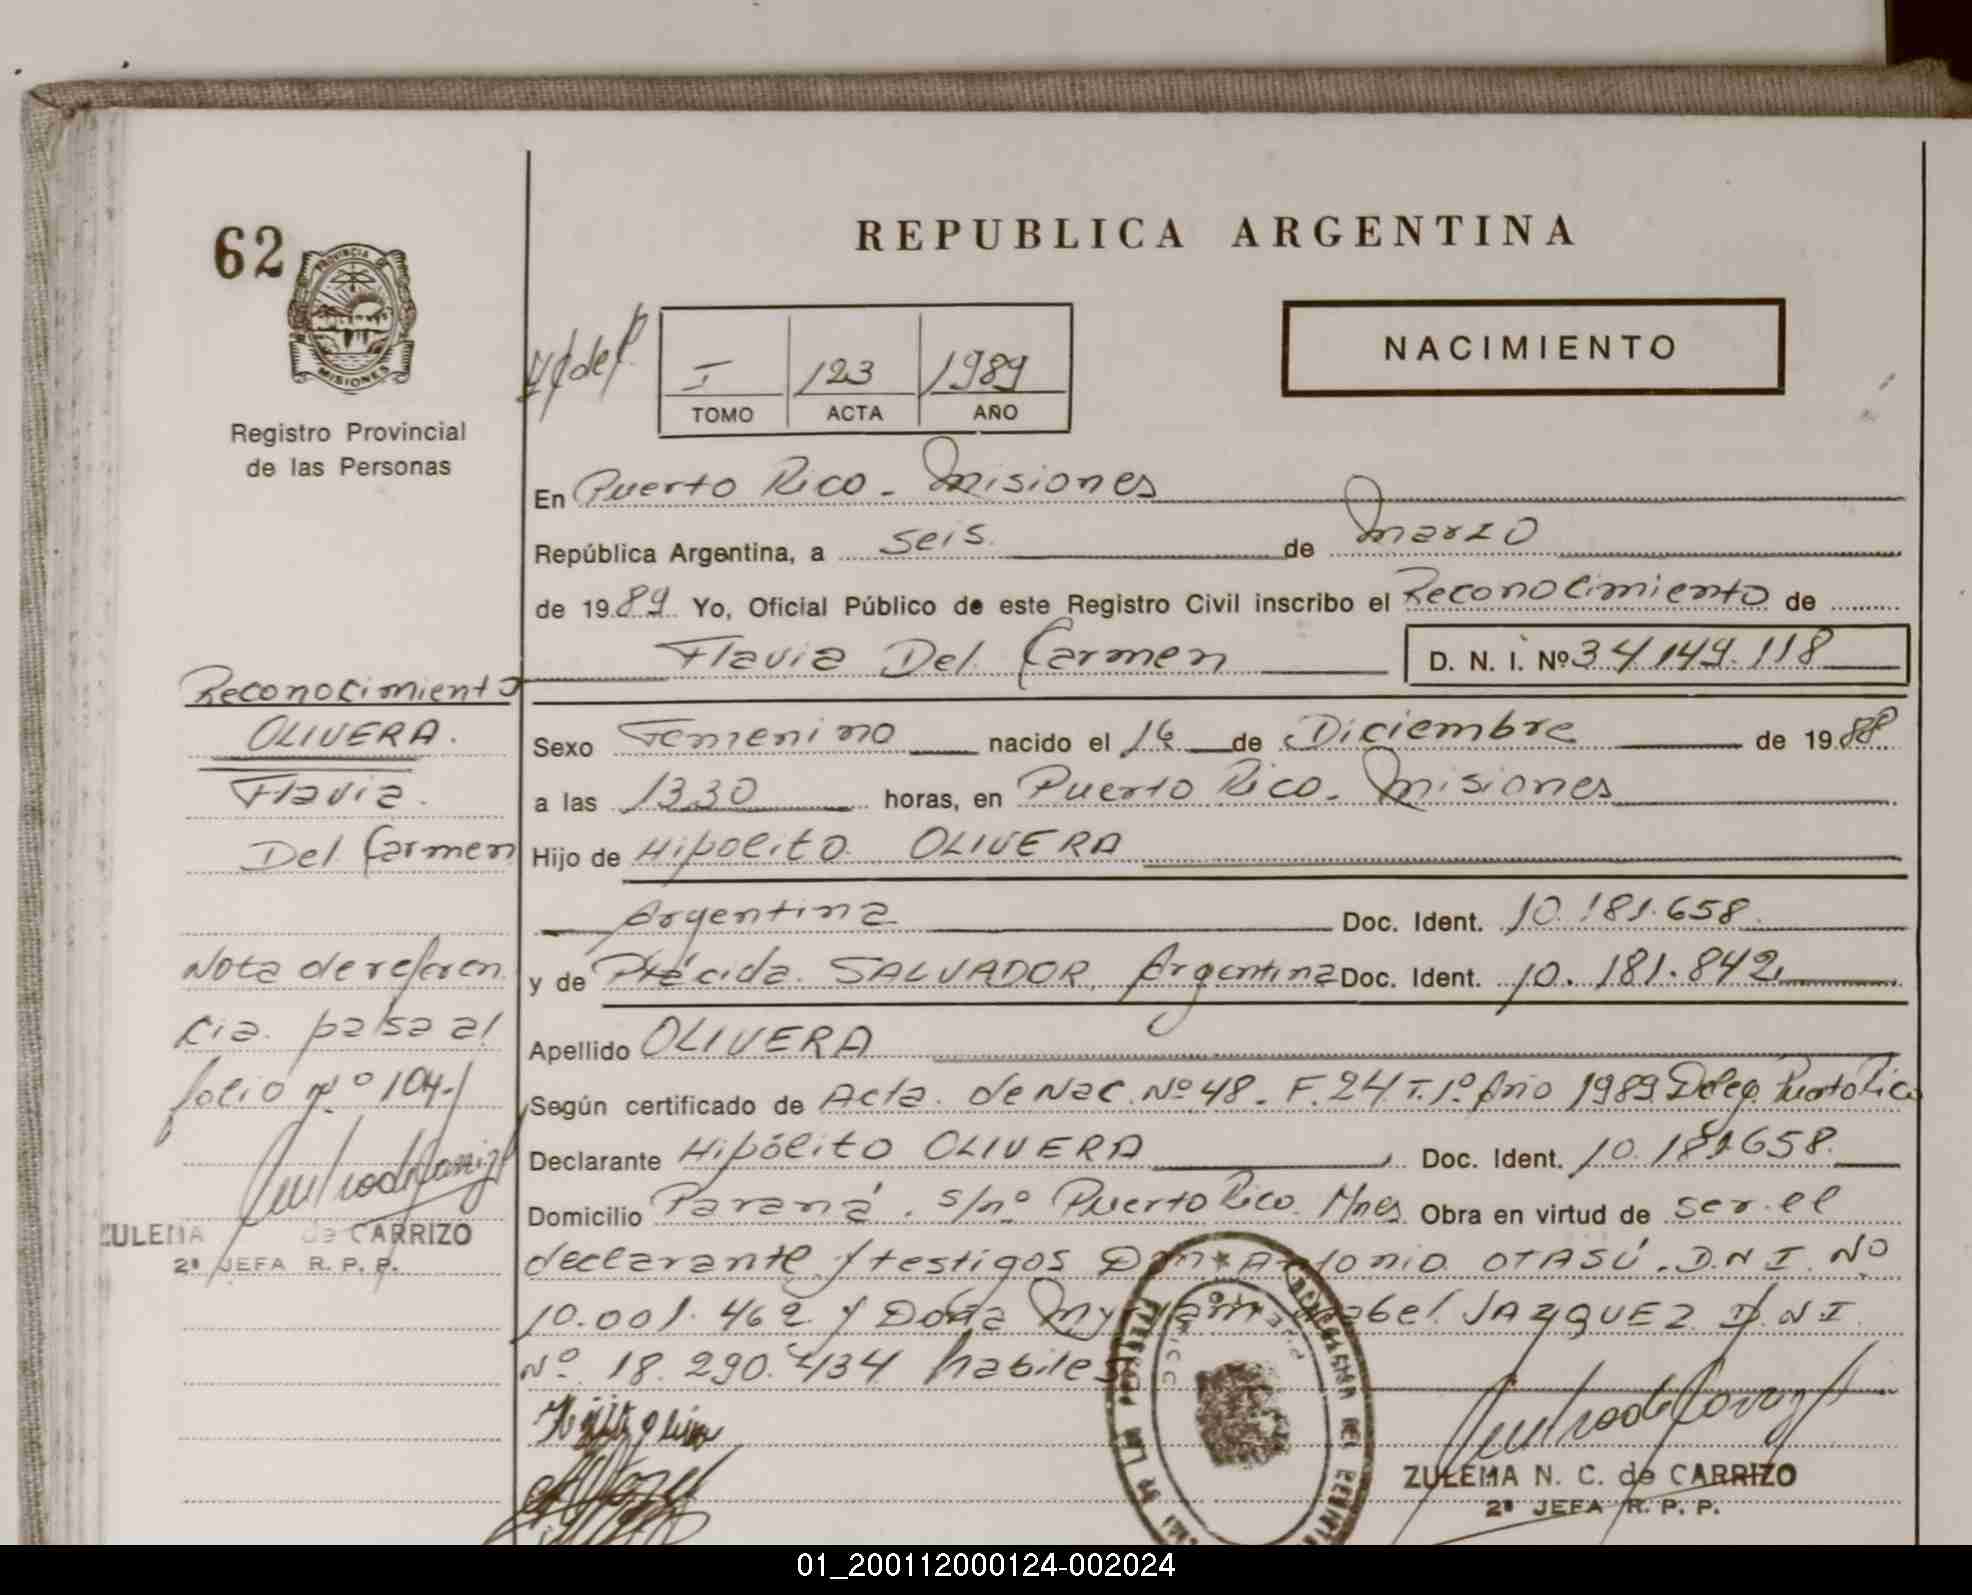 62
PROVINCIA DE
MISIONES
Registro Provincial
de las Personas
REPUBLICA ARGENTINA
NACIMIENTO
I 123 1989
TOMO ACTA AÑO
En Puerto Rico - Misiones
República Argentina, a seis de Marzo
de 1989 Yo, Oficial Público de este Registro Civil inscribo el Reconocimiento de
Flavia Del Carmen D. N. I. Nº 34.149.118
Reconocimiento
OLIVERA.
Flavia.
Del Carmen
Nota de referen
cia. pasa al
folio nº 104.
ZULEMA de CARRIZO
2ª JEFA R. P. P.
Sexo Femenino nacido el 16 de Diciembre de 1988
a las 13.30 horas, en Puerto Rico. Misiones
Hijo de Hipolito OLIVERA
Argentina Doc. Ident. 10.181.658
y de Plácida SALVADOR, Argentina Doc. Ident. 10.181.842
Apellido OLIVERA
Según certificado de Acta de Nac. Nº 48 - F. 24 T. 1º Año 1989 Deleg. Puerto Rico
Declarante Hipólito OLIVERA Doc. Ident. 10.181658.
Domicilio Paraná, s/nº Puerto Rico. Mnes Obra en virtud de ser el
declarante y testigos Don Antonio OTASÚ. D.N.I. Nº
10.001.462 y Doña Isabel D.N.I.
Nº 18.290.434 habiles
ZULEMA N. C. de CARRIZO
2ª JEFA R. P. P.
01_200112000124-002024